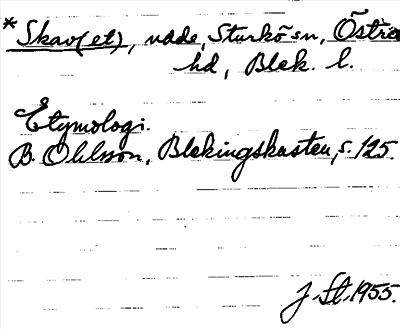 *Skav(et), udde, Sturkö sn, Östra
hd, Blek. l.
Etymologi.
B. Ohlsson, Blekingskusten, s. 125.
J. St. 1955.